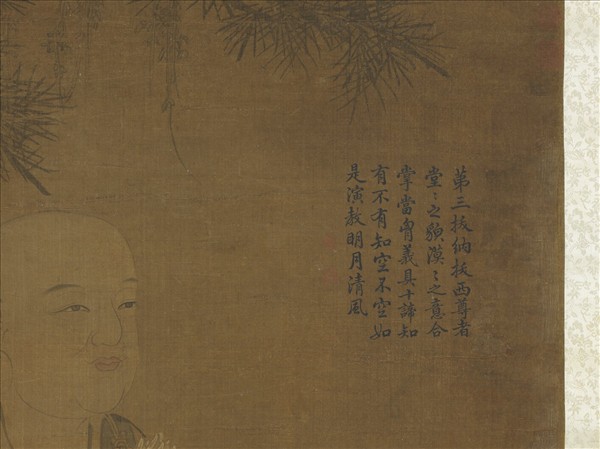 第三拔納拔西尊者
堂〻之貌漠〻之意合
掌當胷義具十諦知
有不有知空不空如
是演教明月清風